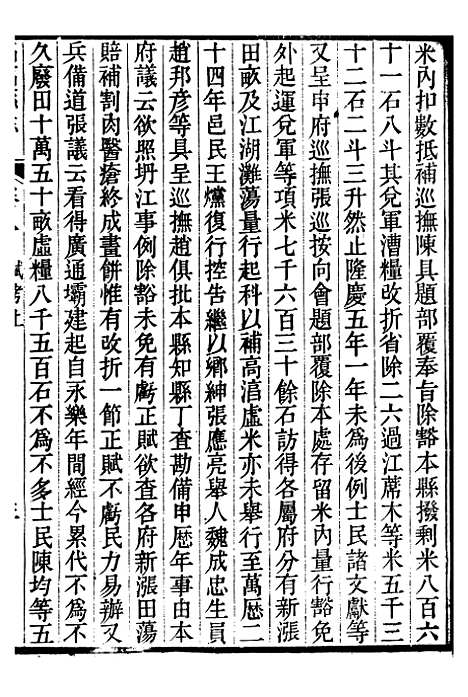 米內扣數抵補巡撫陳具題部覆奉旨除豁本縣撥剩米八百六
十一石八斗其兌軍漕糧改折省除二六過江蓆木等米五千三
十二石二斗三升然止隆慶五年一年未為後例士民諸文獻等
又呈申府巡撫張巡按向會題部覆除本處存留米內量行豁免
外起運兌軍等項米七千六百三十餘石訪得各屬府分有新漲
田畝及江湖灘蕩量行起科以補高淯虛米亦未舉行至萬歷二
十四年邑民王爌復行控告繼以鄉紳張應亮舉人魏成忠生員
趙邦彥等具呈巡撫趙俱批本縣知縣丁查勘備申歷年事由本
府議云欲照坍江事例除豁未免有虧正賦欲查各府新漲田蕩
賠補割肉醫瘡終成畫餅惟有改折一節正賦不虧民力易辦又
兵備道張議云看得廣通壩建起自永樂年間經今累代不為不
久廢田十萬五十畝虛糧八千五百石不為不多士民陳均等五
賦考上